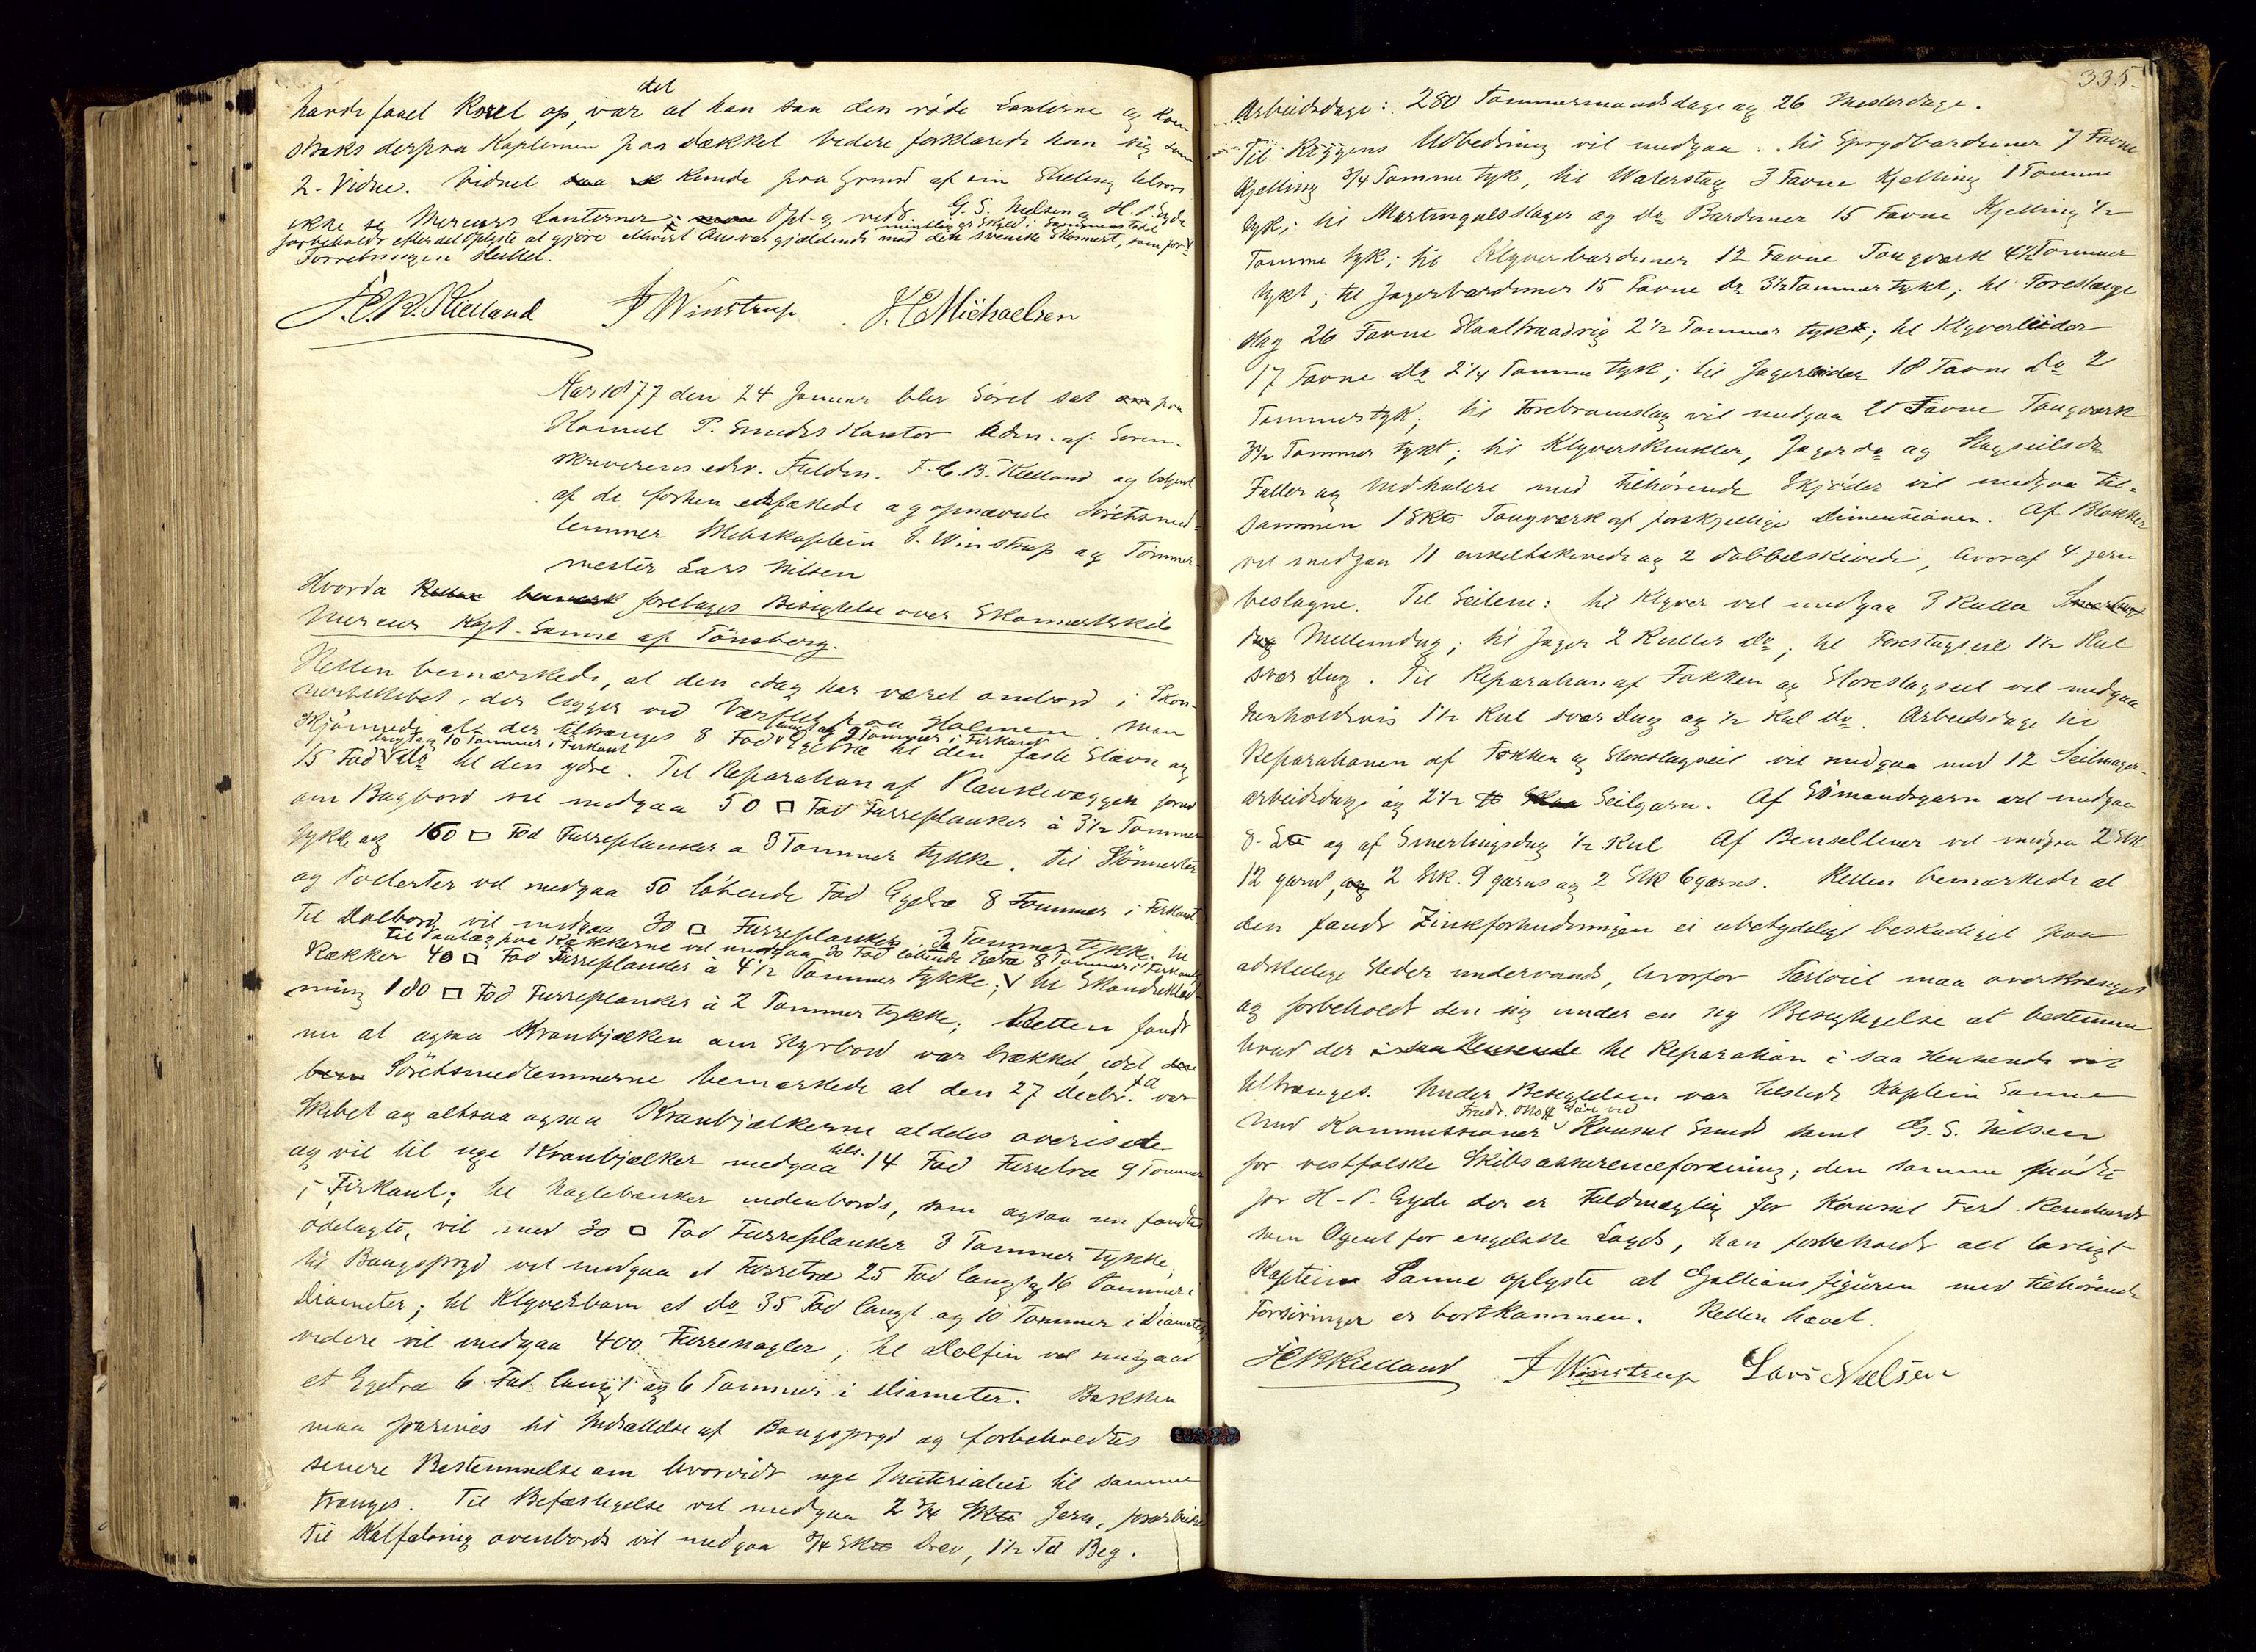 havde faaet Roret op, var det at han saa den røde Lanterne og kom
straks derpaa Kapteinen paa Dækket videre forklarede han sig som
2. Vidne. Vidnet kunde paa Grund af sin Stilling tilrors
ikke se Mercurs Lanterner. Opl. og vedt. G. S. Nielsen og H. P. Eyde
forbeholdt efter det Oplyste at gjøre ethvert Ansvar gjældende mod den svenske Skonnert, som formentlig er Skyld i Sammenstødet
Forretningen sluttet.
F.C.B. Kielland J Winstrup J. C Michaelsen
Aar 1877 den 24 Januar blev Søret sat paa
Konsul P. Smiths Kontor Adm. af Soren-
skriverens edsv. Fuldm. F. C. B. Kielland og betjent
af de forhen edfæstede og opnævnte Søretsmed-
lemmer Skibskaptein J. Winstrup og Tømmer-
mester Lars Nilsen
Hvorda foretoges Besigtelse over Skonnertskib
Mercur Kapt. Sanne af Tønsberg.
Retten bemærkede, at den idag har været ombord i Skon-
nertskibet, der ligger ved Værftet paa Holmen. Man
skjønnede at der tiltrænges 8 Fod langt og 9 Tommer i Firkant Egetræ til den faste Stævn og
15 Fod langt og 10 Tommer i Firkant do til den ydre. Til Reparation af Plankevæggen forud
om Bagbord vil medgaa 50 □ Fod Furreplanker à 3½ Tommer
tykke og 160 □ Fod Furreplanker a 3 Tommer tykke. Til Stønnerter
og Pollerter vil medgaa 50 løbende Fod Egetræ 8 Tommer i Firkant
Til Dolbord vil medgaa 30 □ Furreplanker 3 Tommer tykke, til
Rækker 40 □ Fod Furreplanker à 4½ Tommer tykke; Til Paalæg paa Rækkerne vil medgaa 30 Fod løbende Egetræ 8 Tommer i Firkant; til Skandseklæd-
ning 180 □ Fod Furreplanker à 2 Tommer tykke; Retten fandt
nu at ogsaa Kranbjælken om Styrbord var brækket, idet
Søretsmedlemmerne bemærkede at den 27 Decbr. f.a. var
Skibet og altsaa ogsaa Kranbjælkerne aldeles overisede
og vil til nye Kranbjælker medgaa tils. 14 Fod Furretræ 9 Tommer
i Firkant; til Naglebænker indenbords, som ogsaa nu fandtes
ødelagte, vil med 30 □ Fod Furreplanker 3 Tommer tykke,
til Baugspryd vil medgaa et Furretræ 25 Fod langt og 16 Tommer i
Diameter; til Klyverbom et do 35 Fod langt og 10 Tommer i Diameter
videre vil medgaa 400 Furrenagler; til Dolfin vil medgaa
et Egetræ 6 Fod langt og 6 Tommer i Diameter. Bakken
maa til Indsættelse af Baugspryd og forbeholdtes
senere Bestemmelse om hvorvidt nye Materialier til samme
trænges. Til Befæstigelse vil medgaa 2¾ Sk℔ Jern, forarbeidet
Til Kalfatring ovenbords vil medgaa ¾ Sk℔ Drev, 1½ Td Beg.
335.
Arbeidsdage: 280 Tømmermandsdage og 26 Mesterdage.
Til Riggens Udbedring vil medgaa: til Sprydbarduner 7 Favne
Kjetting ¾ Tomme tyk, til Waterstag 3 Favne Kjetting 1 Tomme
tyk; til Martingalsstager og do Barduner 15 Favne Kjetting ½
Tomme tyk; til Klyverbarduner 12 Favne Tougværk 4½ Tommer
tykt; til Jagerbarduner 15 Favne do 3½ Tommer tykt; til Forestænge
stag 26 Favne Staaltraadrig 2½ Tommer tykt; til Klyverleider
17 Favne do 2¼ Tomme tyk; til Jagerleider 18 Favne do 2
Tommer tyk; til Forebramstag vil medgaa 21 Favne Tougværk
3½ Tommer tykt; til Klyverskinkler, Jager do og Stagseils do
Faller og Nedhalere med tilhørende Skjøder vil medgaa til-
sammen 1 Sk℔ Tougværk af forskjellige Dimensioner. Af Blokker
vil medgaa 11 enkeltskivede og 2 dobbelskivede, hvoraf 4 jern
beslagne. Til Seilene: til Klyver vil medgaa 3 Ruller
Mellemdug; til Jager 2 Ruller do; til Forestagseil 1½ Rul
svær Dug. Til Reparation af Fokken og Storestagseil vil medgaa
henholdsvis 1½ Rul svær Dug og ½ Rul do. Arbeidsdage til
Reparationen af Fokken og Storestagseil vil medgaa med 12 Seilmager-
arbeidsdage og 2½ ℔ Seilgarn. Af Sømandsgarn vil medgaa
8 ℔ og af Smertingsdug ½ Rul Af Benseltliner vil medgaa 2 Stk
12 garns, 2 Stk. 9 garns og 2 Stk 6 garns. Retten bemærkede at
den fandt Zinkforhudningen ei ubetydeligt beskadiget paa
adskillige Steder undervands, hvorfor Fartøiet maa overkrænges
og forbeholdt den sig under en ny Besigtigelse at bestemme
hvad der til Reparation i saa Henseende
tiltrænges. Under Besigtelsen var tilstede Kaptein Sanne
med Kommissionær Konsul Smith samt G. S. Nilsen
for vestfolske Skibsassuranceforening; den samme mødte
for H. P. Eyde der er Fuldmægtig for Konsul Ferd. Reinhardt
som Agent for engelske Loyds, han forbeholdt alt lovligt
Kaptein Sanne oplyste at Gallionsfiguren med tilhørende
Forsiringer er bortkommen. Retten hævet.
FCBKielland J Winstrup Lars Nielsen